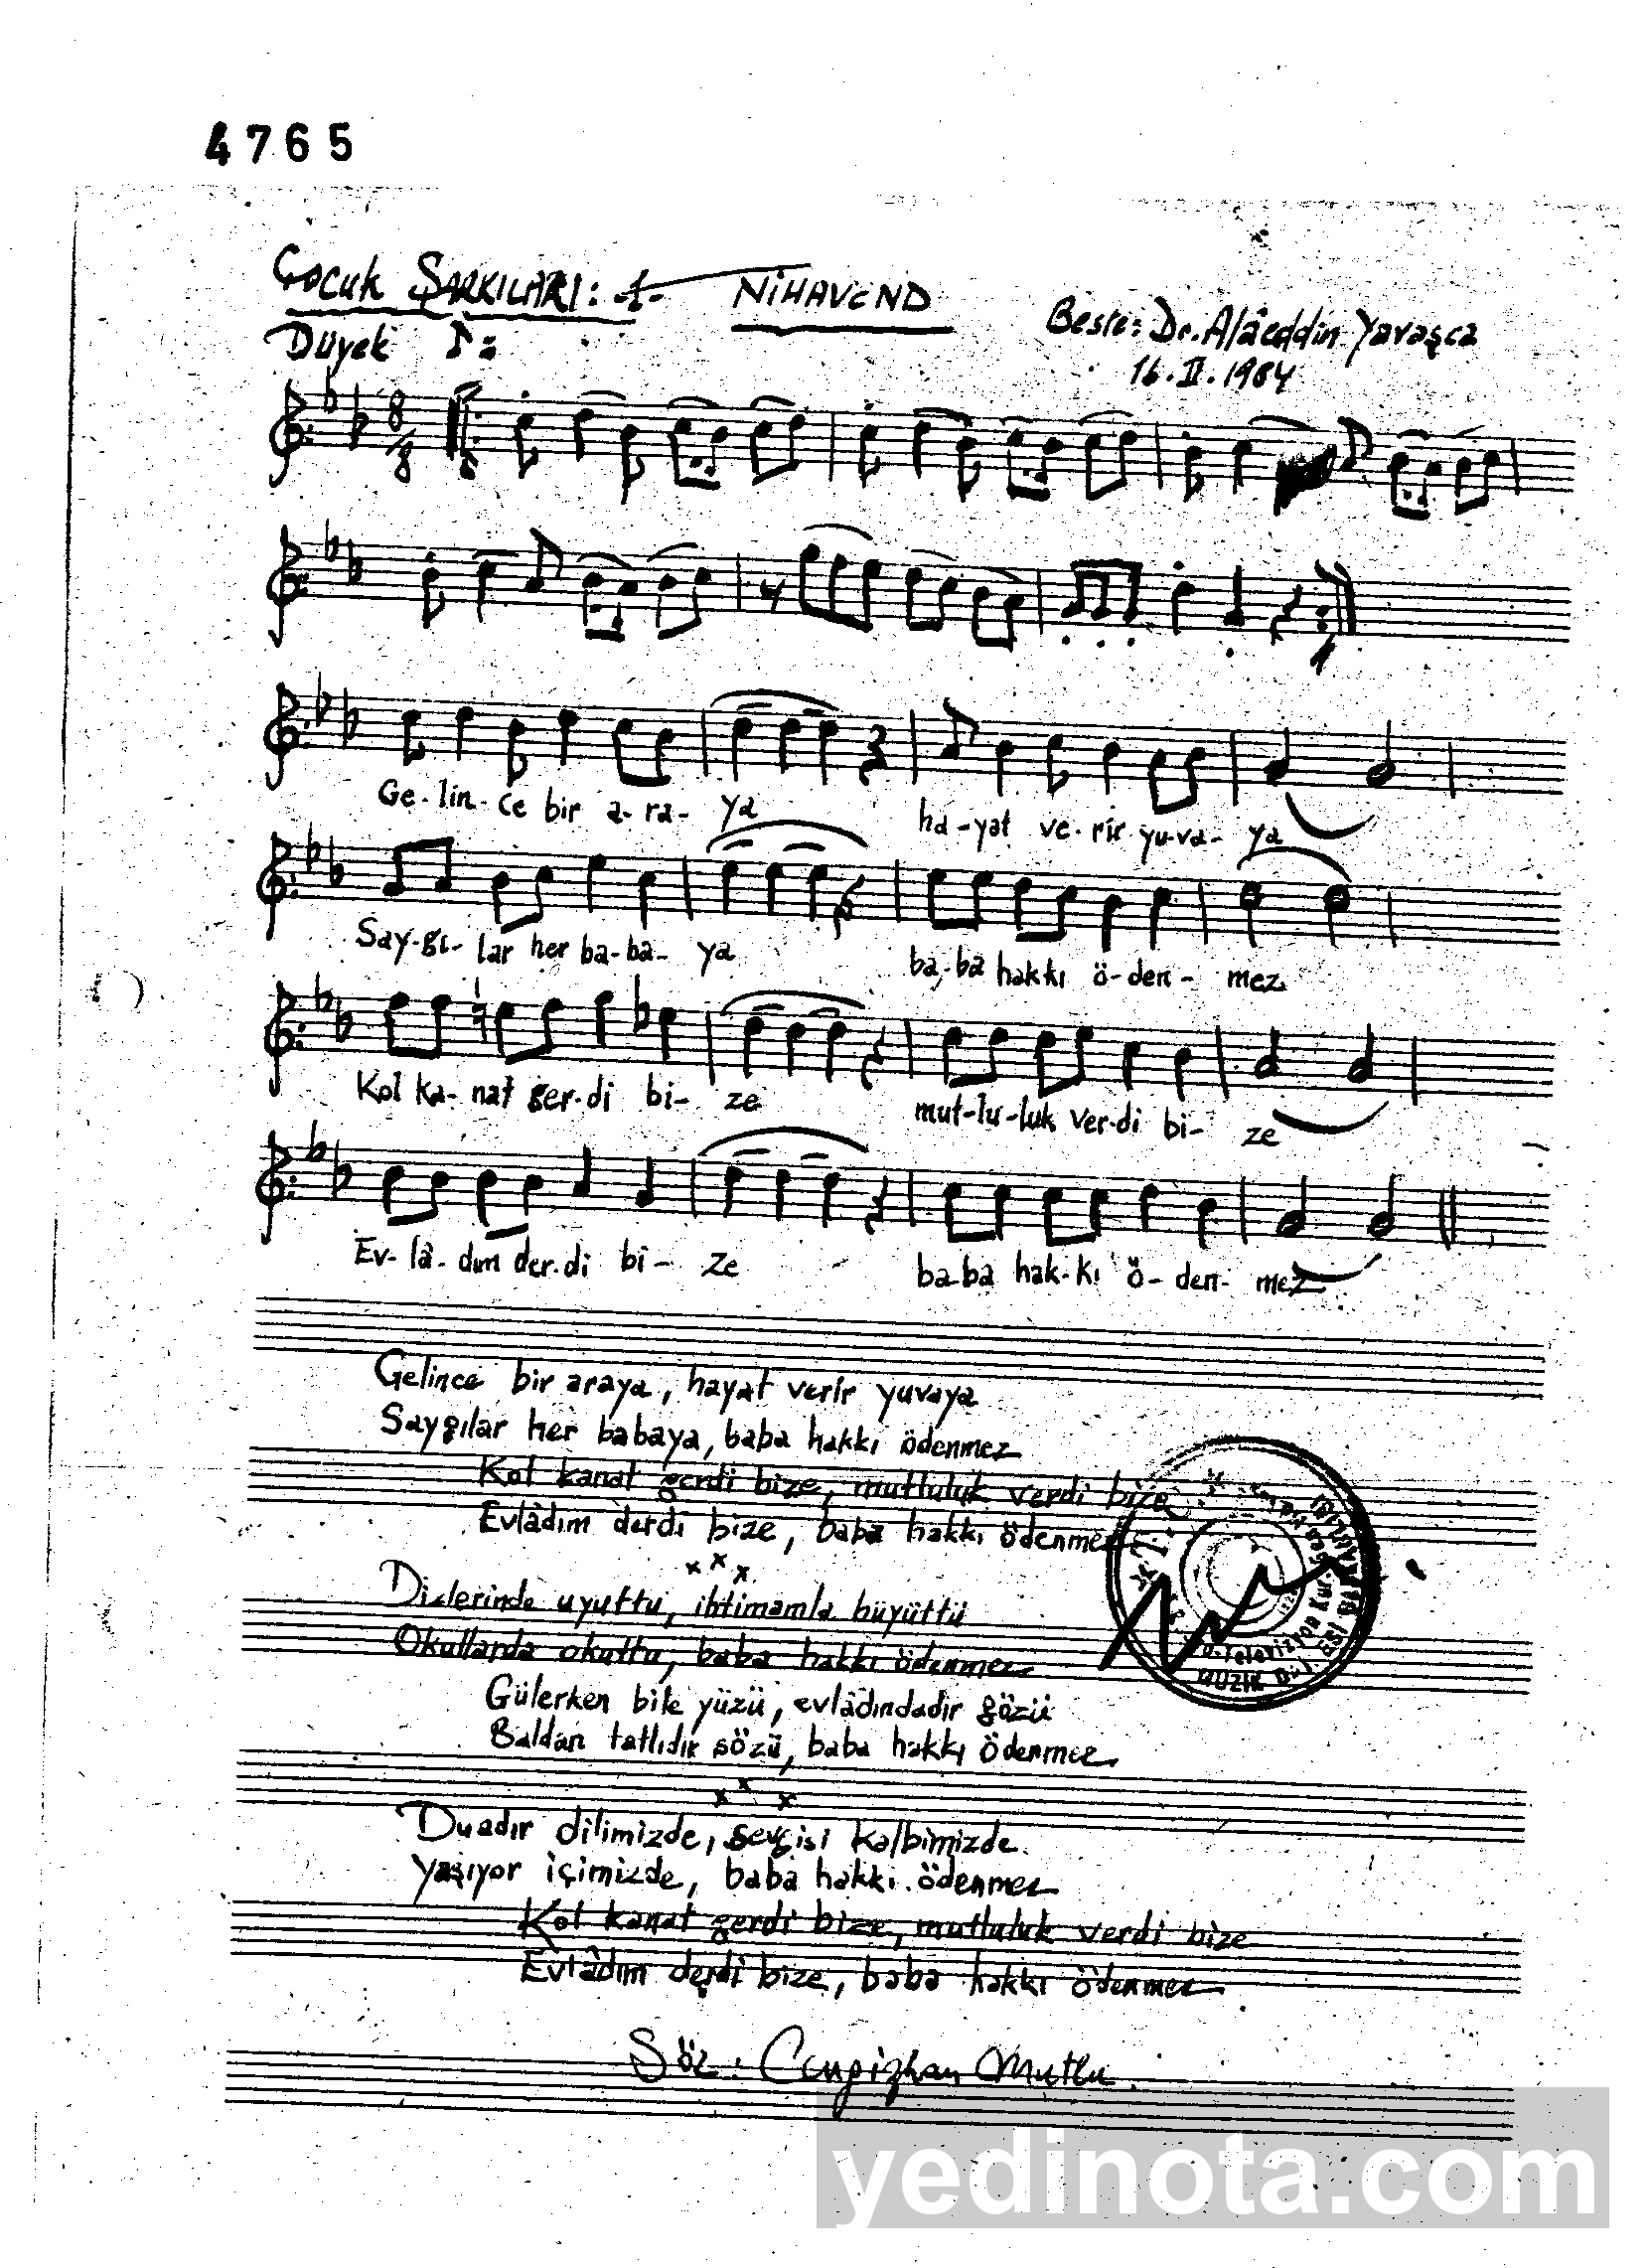 4765
Çocuk ŞARKILARI: -1-
NİHAVEND
Düyek
Beste: Dr. Alâeddin Yavaşca
16.II.1984
8/8
Ge-lin-ce bir a-ra-ya ha-yat ve-rir yu-va-ya
Say-gı-lar her ba-ba-ya ba-ba hakkı ö-den-mez
Kol ka-nat ger-di bi-ze mut-lu-luk ver-di bi-ze
Ev-lâ-dım der-di bi-ze ba-ba hak-kı ö-den-mez
Gelince bir araya, hayat verir yuvaya
Saygılar her babaya, baba hakkı ödenmez
Kol kanat gerdi bize, mutluluk verdi bize
Evlâdım derdi bize, baba hakkı ödenmez
x x x
Dizlerinde uyuttu, ihtimamla büyüttü
Okullarda okuttu, baba hakkı ödenmez
Gülerken bile yüzü, evlâdındadır gözü
Baldan tatlıdır sözü, baba hakkı ödenmez
x x x
Duadır dilimizde, sevgisi kalbimizde
Yaşıyor içimizde, baba hakkı ödenmez
Kol kanat gerdi bize, mutluluk verdi bize
Evlâdım derdi bize, baba hakkı ödenmez
Söz: Cengizhan Mutlu
yedinota.com